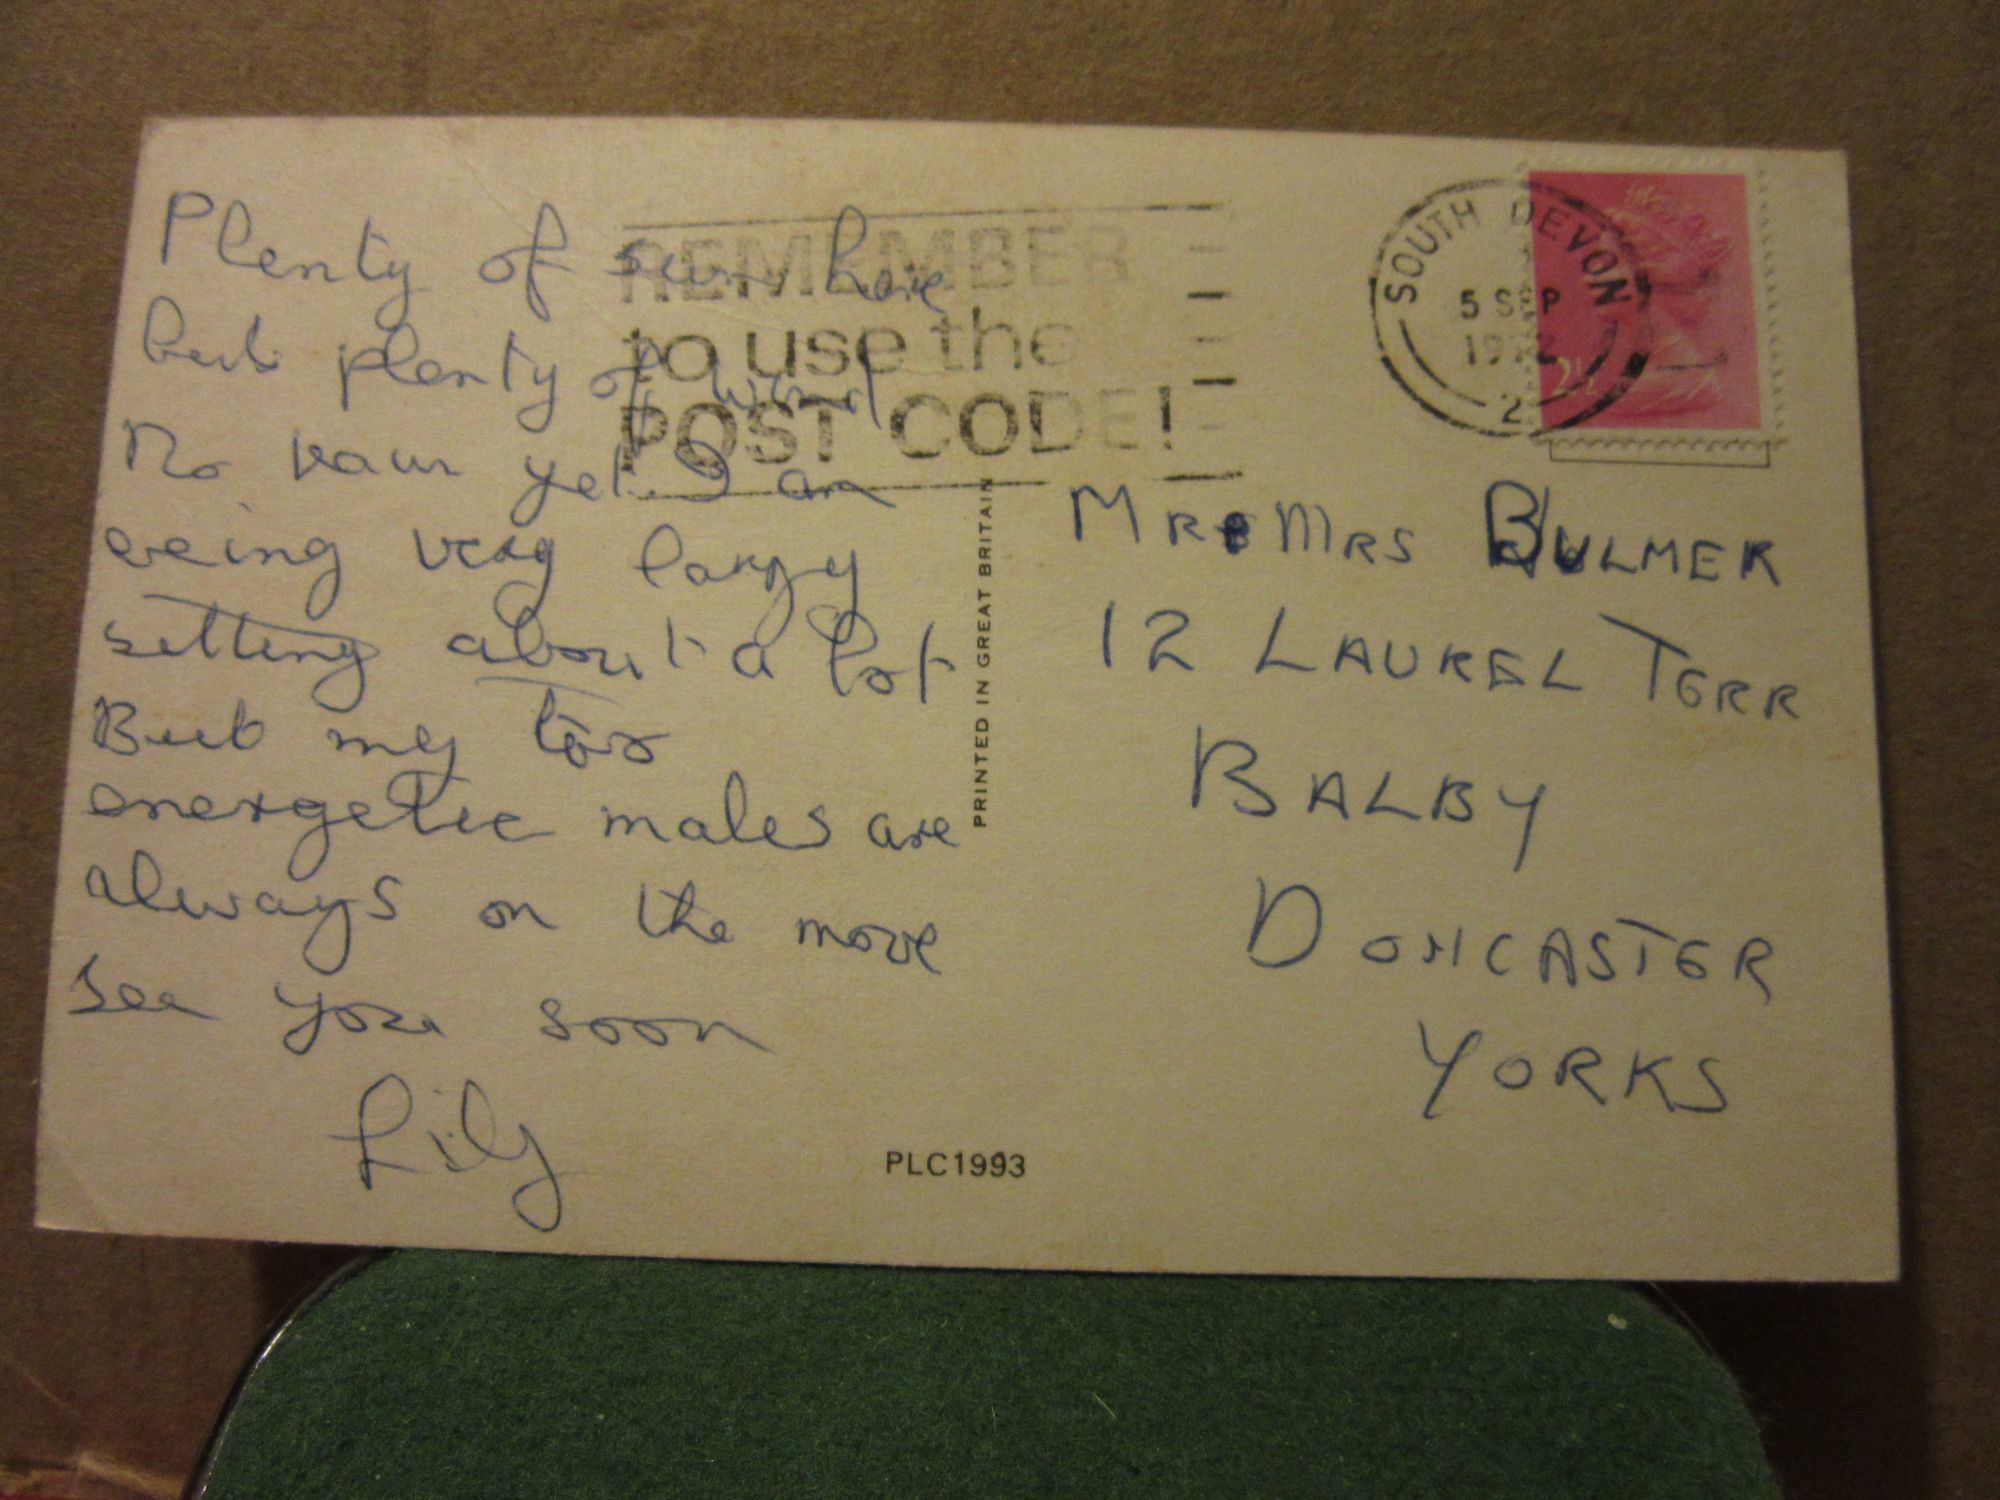 Plenty of sun here
but plenty of wind
No rain yet. I am
being very lazy
sitting about a lot
But my two
energetic males are
always on the move
See you soon
Lily
REMEMBER
to use the
POST CODE!
SOUTH DEVON
5 SEP
1972
2
2½
PRINTED IN GREAT BRITAIN
MR & MRS BULMER
12 LAUREL TERR
BALBY
DONCASTER
YORKS
PLC1993